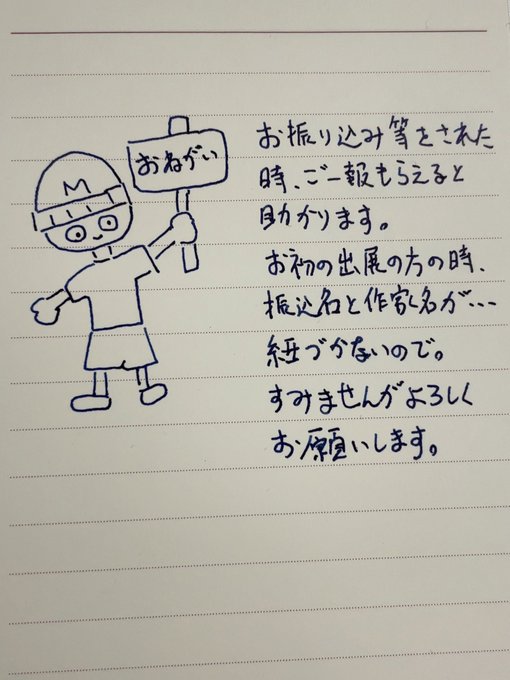 M
おねがい
お振り込み等をされた
時、ご一報もらえると
助かります。
お初の出展の方の時、
振込名と作家名が…
紐づかないので。
すみませんがよろしく
お願いします。